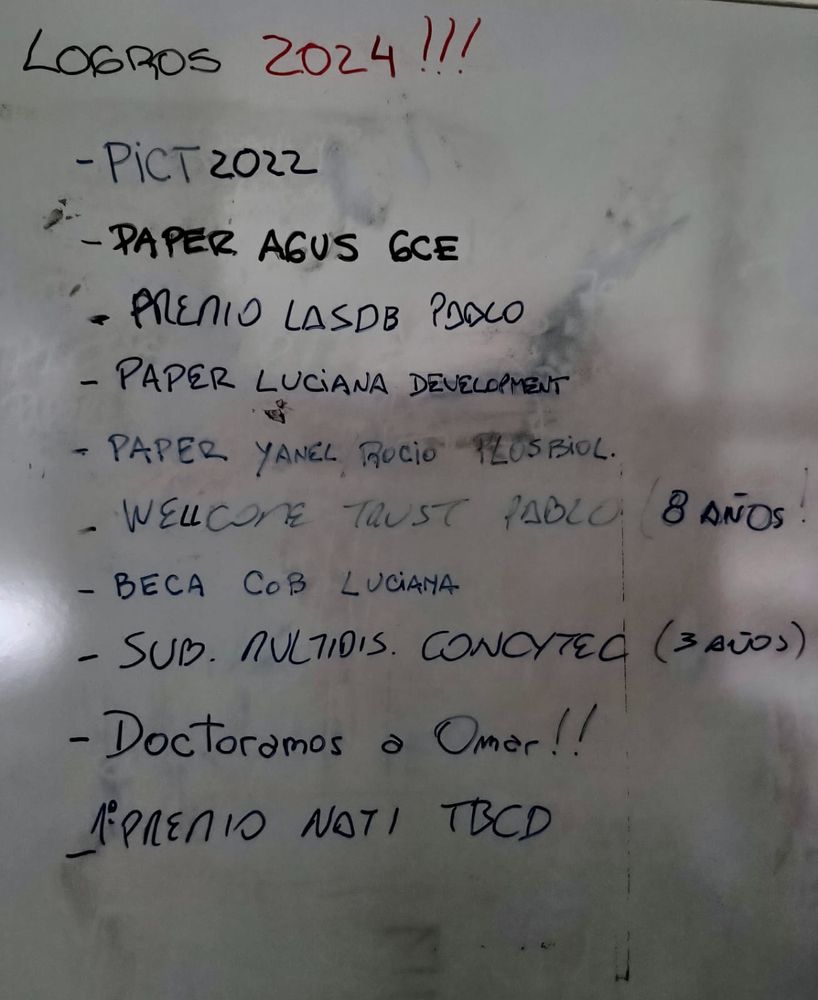 LOGROS 2024!!!
- PiCT 2022
- PAPER AGUS GCE
- PREMIO LASDB PABLO
- PAPER LUCiANA DEVELOPMENT
- PAPER YANEL ROCIO PLOSBIOL.
- WELLCOME TRUST PABLO (8 AÑOS!
- BECA CoB LUCiANA
- SUB. MULTIDIS. CONCYTEC (3 AÑOS)
- Doctoramos a Omar!!
_ 1º PREMIO NATI TBCD